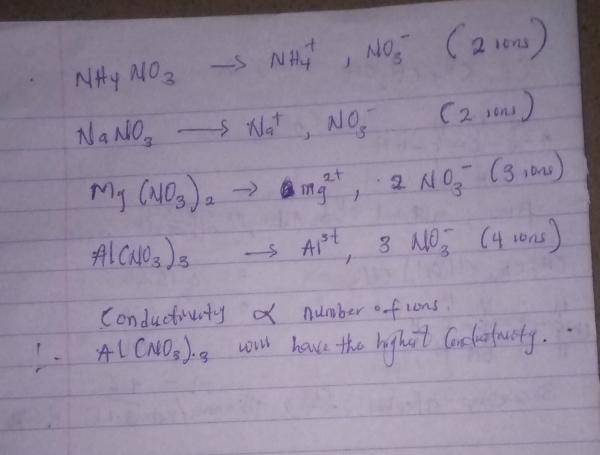 NH4NO3 → NH4⁺, NO3⁻ (2 ions)
NaNO3 → Na⁺, NO3⁻ (2 ions)
Mg(NO3)2 → mg²⁺, 2 NO3⁻ (3 ions)
Al(NO3)3 → Al³⁺, 3 NO3⁻ (4 ions)
Conductivity ∝ number of ions.
Al(NO3)3 will have the highest Conductivity.